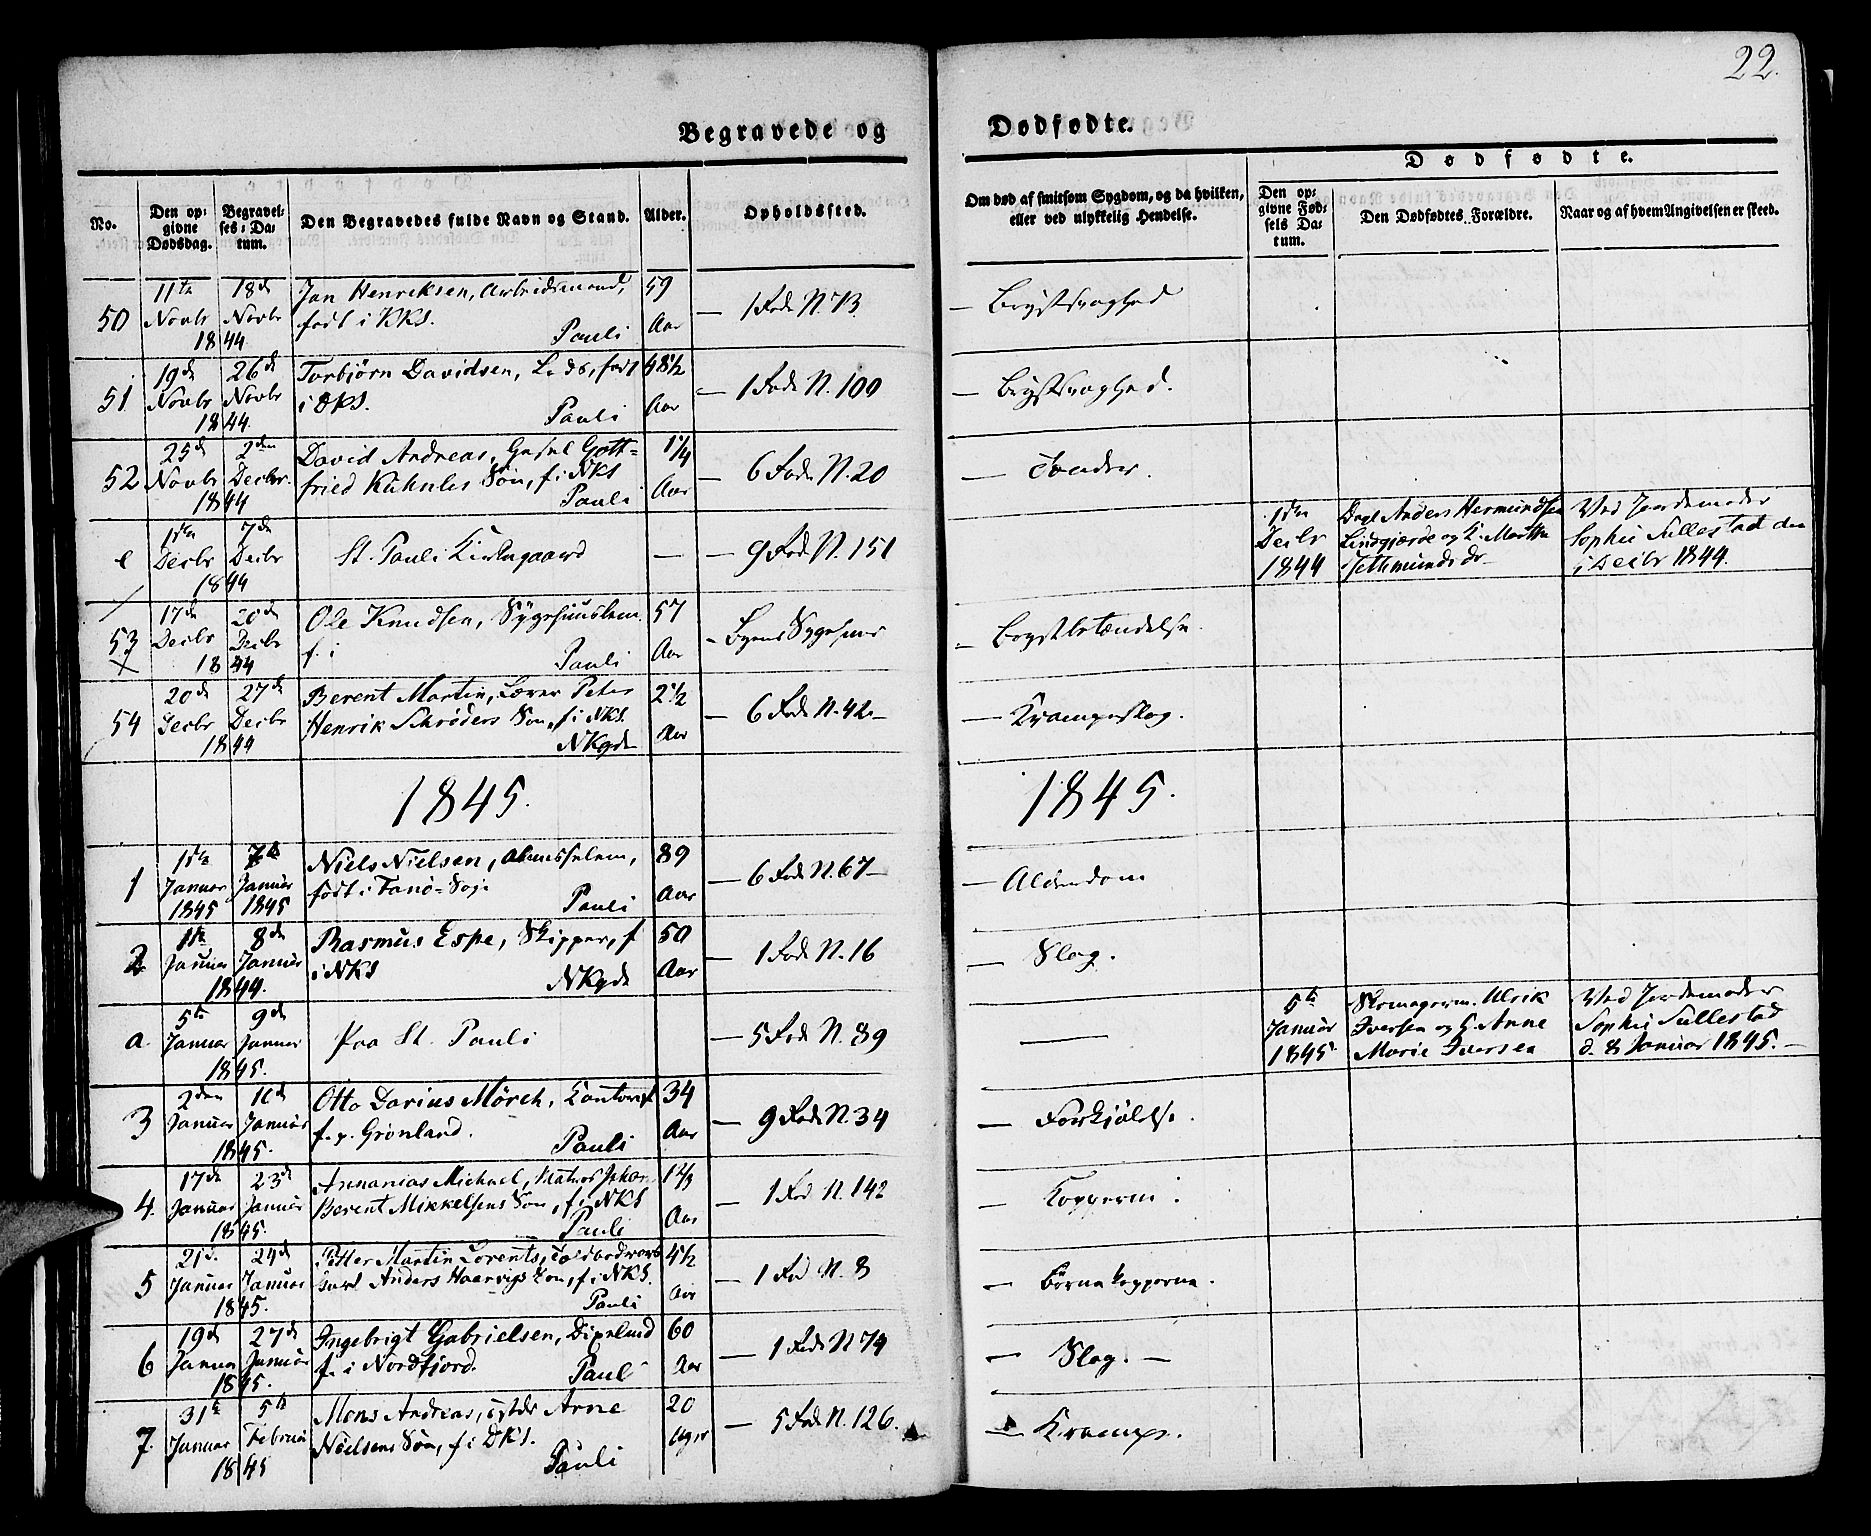 22.
Begravede og Dødfødte.
Dødfødte.
No.
Den opgivne Dødsdag.
Begravelses-Datum.
Den Begravedes fulde Navn og Stand.
Alder.
Opholdssted.
Om død af smitsom Sygdom, og da hvilken, eller ved ulykkelig Hendelse.
Den opgivne Fødsels Datum.
Den Dødfødtes Forældre.
Naar og af hvem Angivelsen er skeed.
50 11te Novbr 18de Novbr 1844 Jan Henriksen, Arbeidsmand, født i KKS. Pauli 59 Aar — 1 Rode N. 73 — Brystsvaghed
51 19de Novbr 26de Novbr 1844 Torbjörn Davidsen, født i DKS. Pauli 48 1/2 Aar — 1 Rode N. 100 — Brystsvaghed.
52 25de Novbr 2den Decbr. 1844 David Andreas, Gottfried Kühnles Søn, f. i NKS Pauli 1 1/4 Aar — 6 Rode N. 20 — Tænder.
e 1ste Decbr 7de Decbr 1844 St. Pauli Kirkegaard — — 9 Rode N. 151 1ste Decbr 1844 Anders Hermundsen og Ved Jordemoder Sophie Sullestad den Decbr 1844.
53 17de Decbr 20de Decbr 1844 Ole Knudsen, Sygehuuslem f. i Pauli 57 Aar — Byens Sygehuus — Brystbetændelse.
54 20de Decbr 27de Decbr 1844 Berent Martin, Peter Henrik Schrøders Søn, f. i NKS. NKgde 2 1/2 Aar — 6 Rode N. 42 — — Krampeslag.
1845. 1845.
1 1ste Januar 1845 7de Januar 1845 Niels Nielsen, Almisselem, født i Fanö-Sogn Pauli 89 Aar — 6 Rode N. 67 — — Alderdom
2 1te Januar 8de Januar 1844. Rasmus Espe, Skipper, f i NKS NKgde 50 Aar — 1 Rode N. 16 — Slag.
a. 5te Januar 9de Januar 1845. Paa St. Pauli — 5 Rode N. 89 — 5te Januar 1845 Skomagerm. Ulrik Iversen og H. Anne Marie Iversen Ved Jordemoder Sophie Sullestad d. 8 Januar 1845. —
3 2den Januar 11te Januar 1845. Otto Darius Mörch, Kontorist f. p. Grönland. Pauli 34 Aar — 9 Rode N. 34 — Forkjölelse.
4. 17de Januar 23de Januar 1845. Annanias Michael, Berent Mikkelsens Søn, f. i NKS Pauli 1 2/3 Aar — 1 Rode N. 142 — Kopperne.
5 21de Januar 24de Januar 1845. Petter Martin Lorents, Anders Haarvigs Søn, f. i NKS. Pauli 4 1/2 Aar — 1 Rod N. 8 — Børnekopperne.
6 19de Januar 27de Januar 1845. Ingebrigt Gabrielsen, f. i Nordfjord. Pauli 60 Aar — 1 Rode N 74 — Slag. —
7. 31te Januar 5te Februar 1845 Mons Andreas, Arne Nielsens Søn, f. i DKS. Pauli 20 Uger — 5 Rode N. 126. — Krampe.